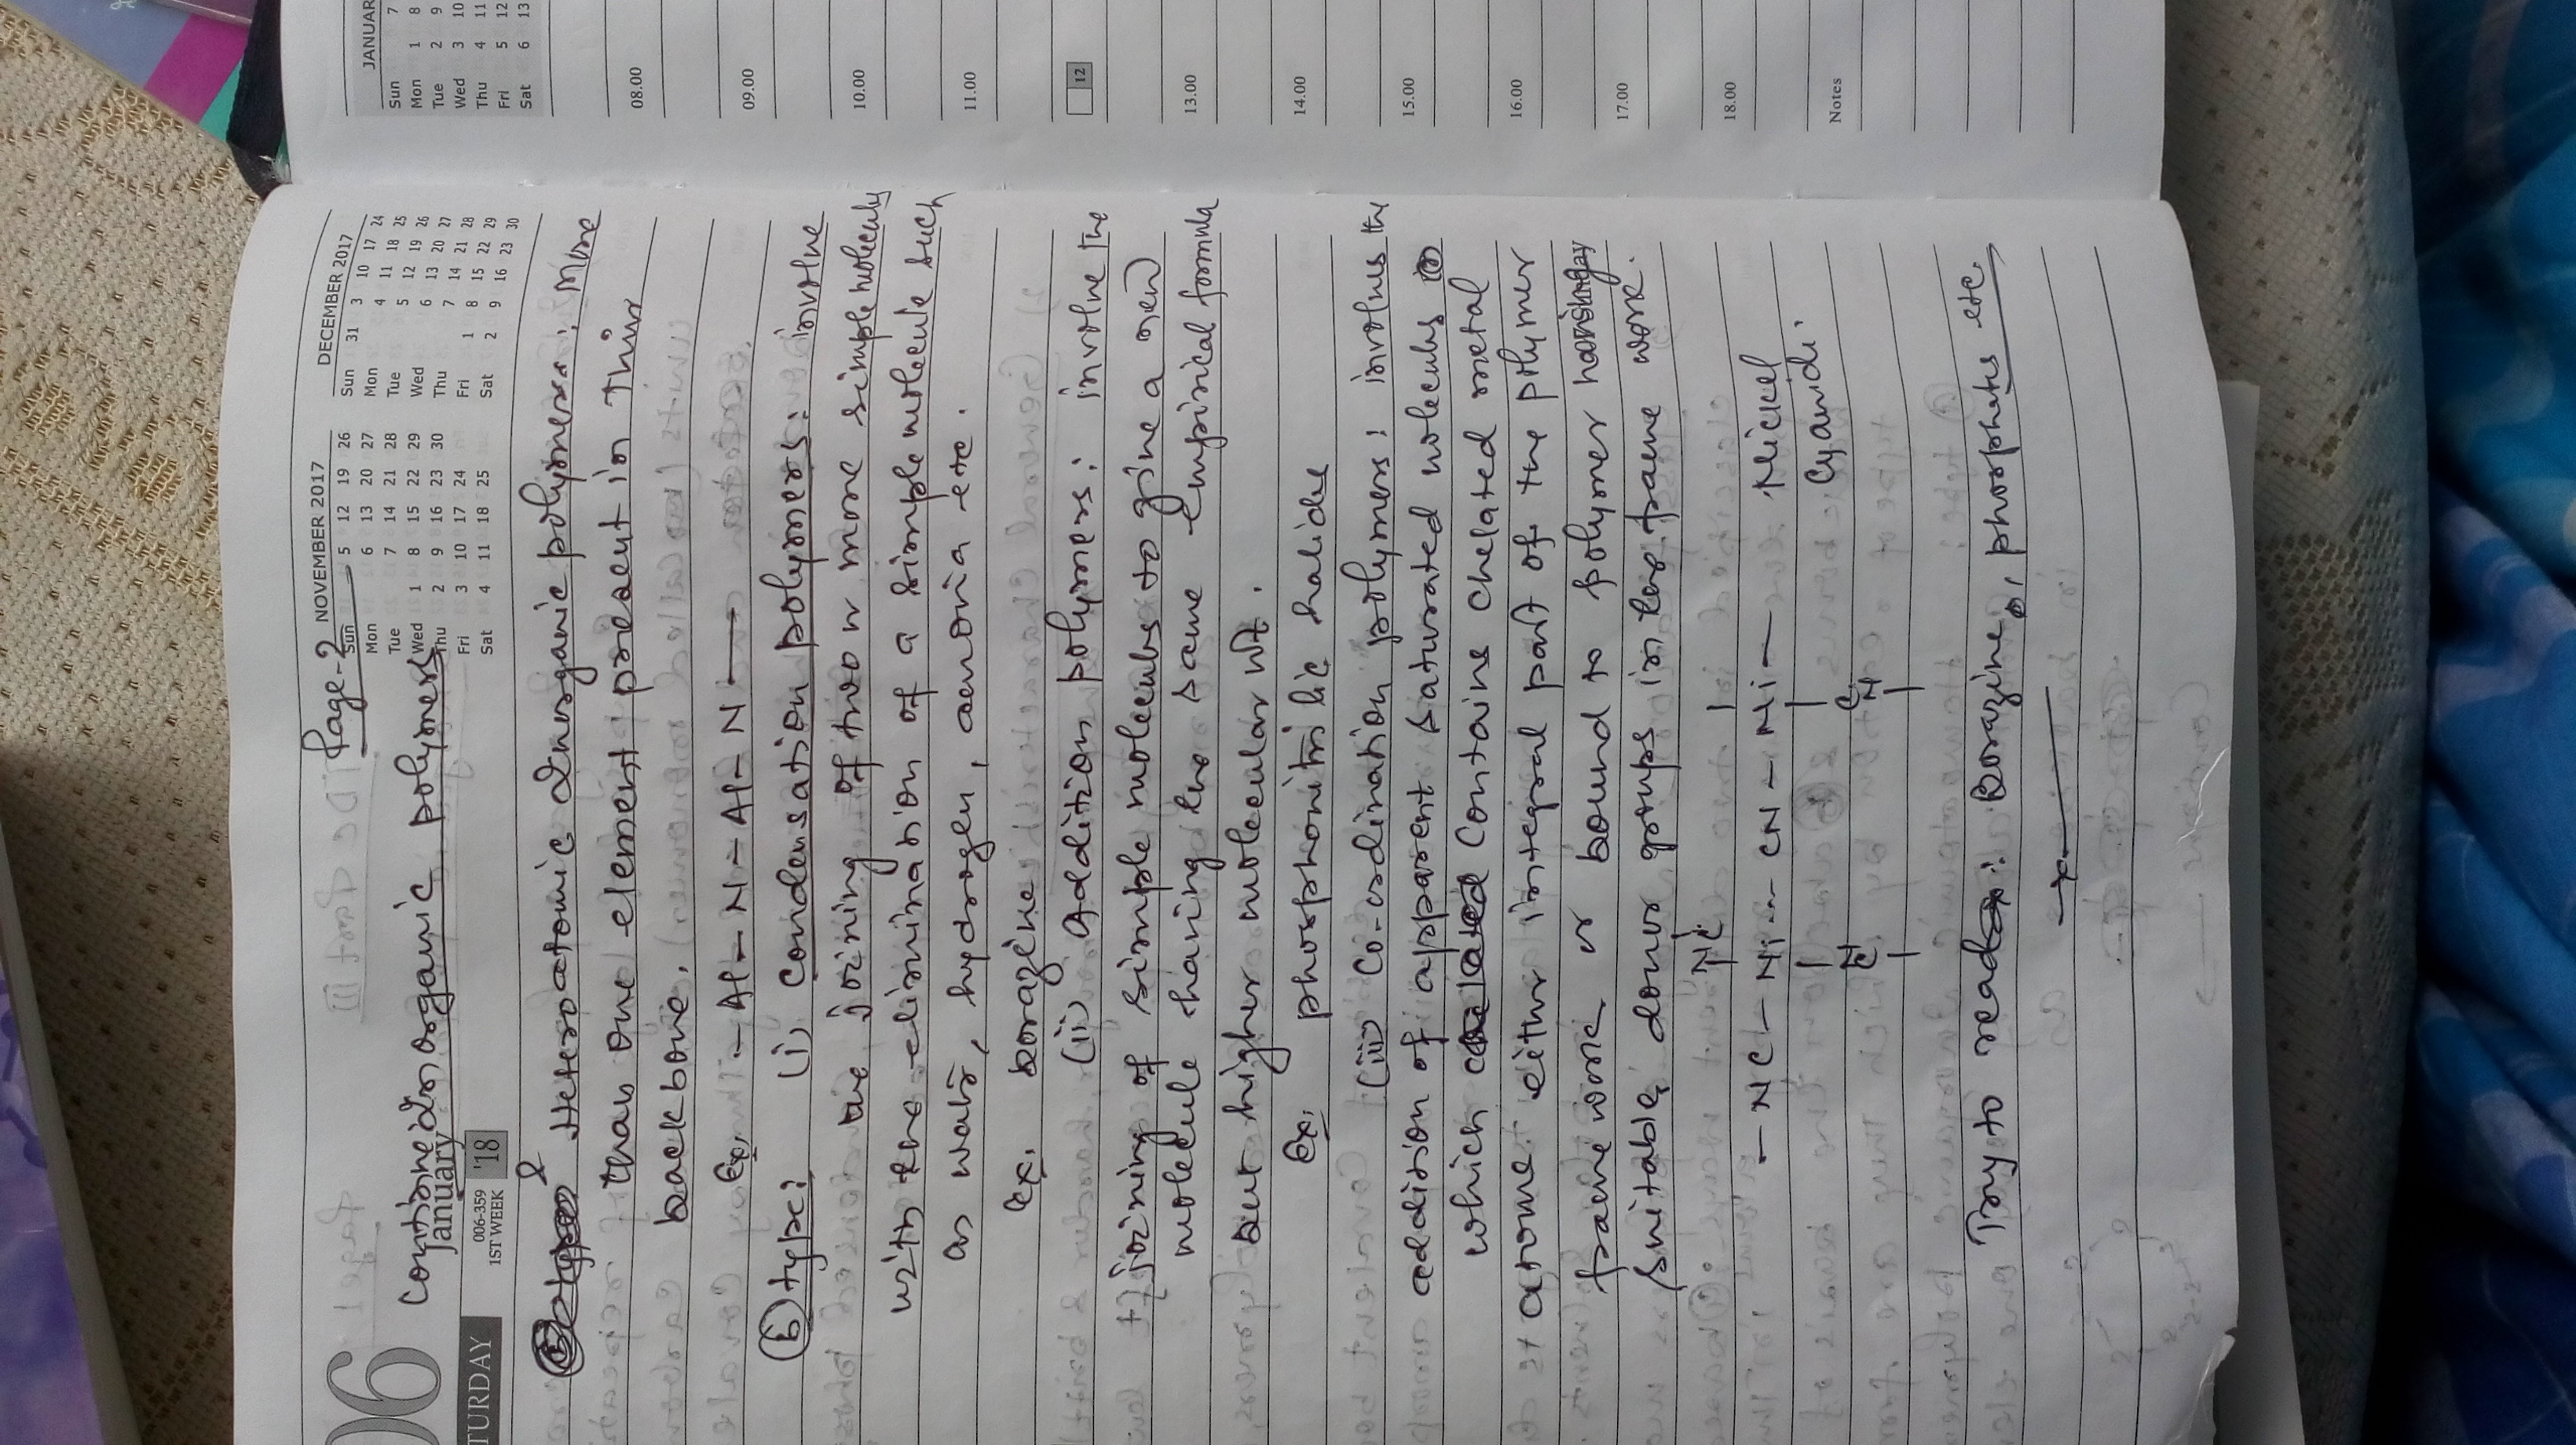 Page-2
NOVEMBER 2017
Sun 5 12 19 26
Mon 6 13 20 27
Tue 7 14 21 28
Wed 1 8 15 22 29
Thu 2 9 16 23 30
Fri 3 10 17 24
Sat 4 11 18 25
DECEMBER 2017
Sun 31 3 10 17 24
Mon 4 11 18 25
Tue 5 12 19 26
Wed 6 13 20 27
Thu 7 14 21 28
Fri 1 8 15 22 29
Sat 2 9 16 23 30
06
SATURDAY
January
006-359
1ST WEEK
'18
Continue Inorganic polymers
& Heteroatomic Inorganic polymers: More
than one element present in Thin
backbone.
Ex. — Al — N — Al — N —
(b) type: (i) Condensation polymers: involve
the joining of two or more simple molecules
with the elimination of a simple molecule such
as water, hydrogen, amonia etc.
Ex. borazine
(ii) Addition polymers: involve the
joining of simple molecules to give a new
molecule having the same empirical formula
but higher molecular wt.
Ex. phosphonitrilic halides
(iii) Co-ordination polymers: involves the
addition of apparent saturated molecules
which contains chelated metal
atome either integral part of the polymer
frame work or bound to polymer having
suitable donor groups in the frame work.
— NC — Ni — CN — Ni — Nickel
Cyanide.
Try to read: Borazine, phosphates etc.
— x —
JANUAR
Sun 7
Mon 1 8
Tue 2 9
Wed 3 10
Thu 4 11
Fri 5 12
Sat 6 13
08.00
09.00
10.00
11.00
12
13.00
14.00
15.00
16.00
17.00
18.00
Notes